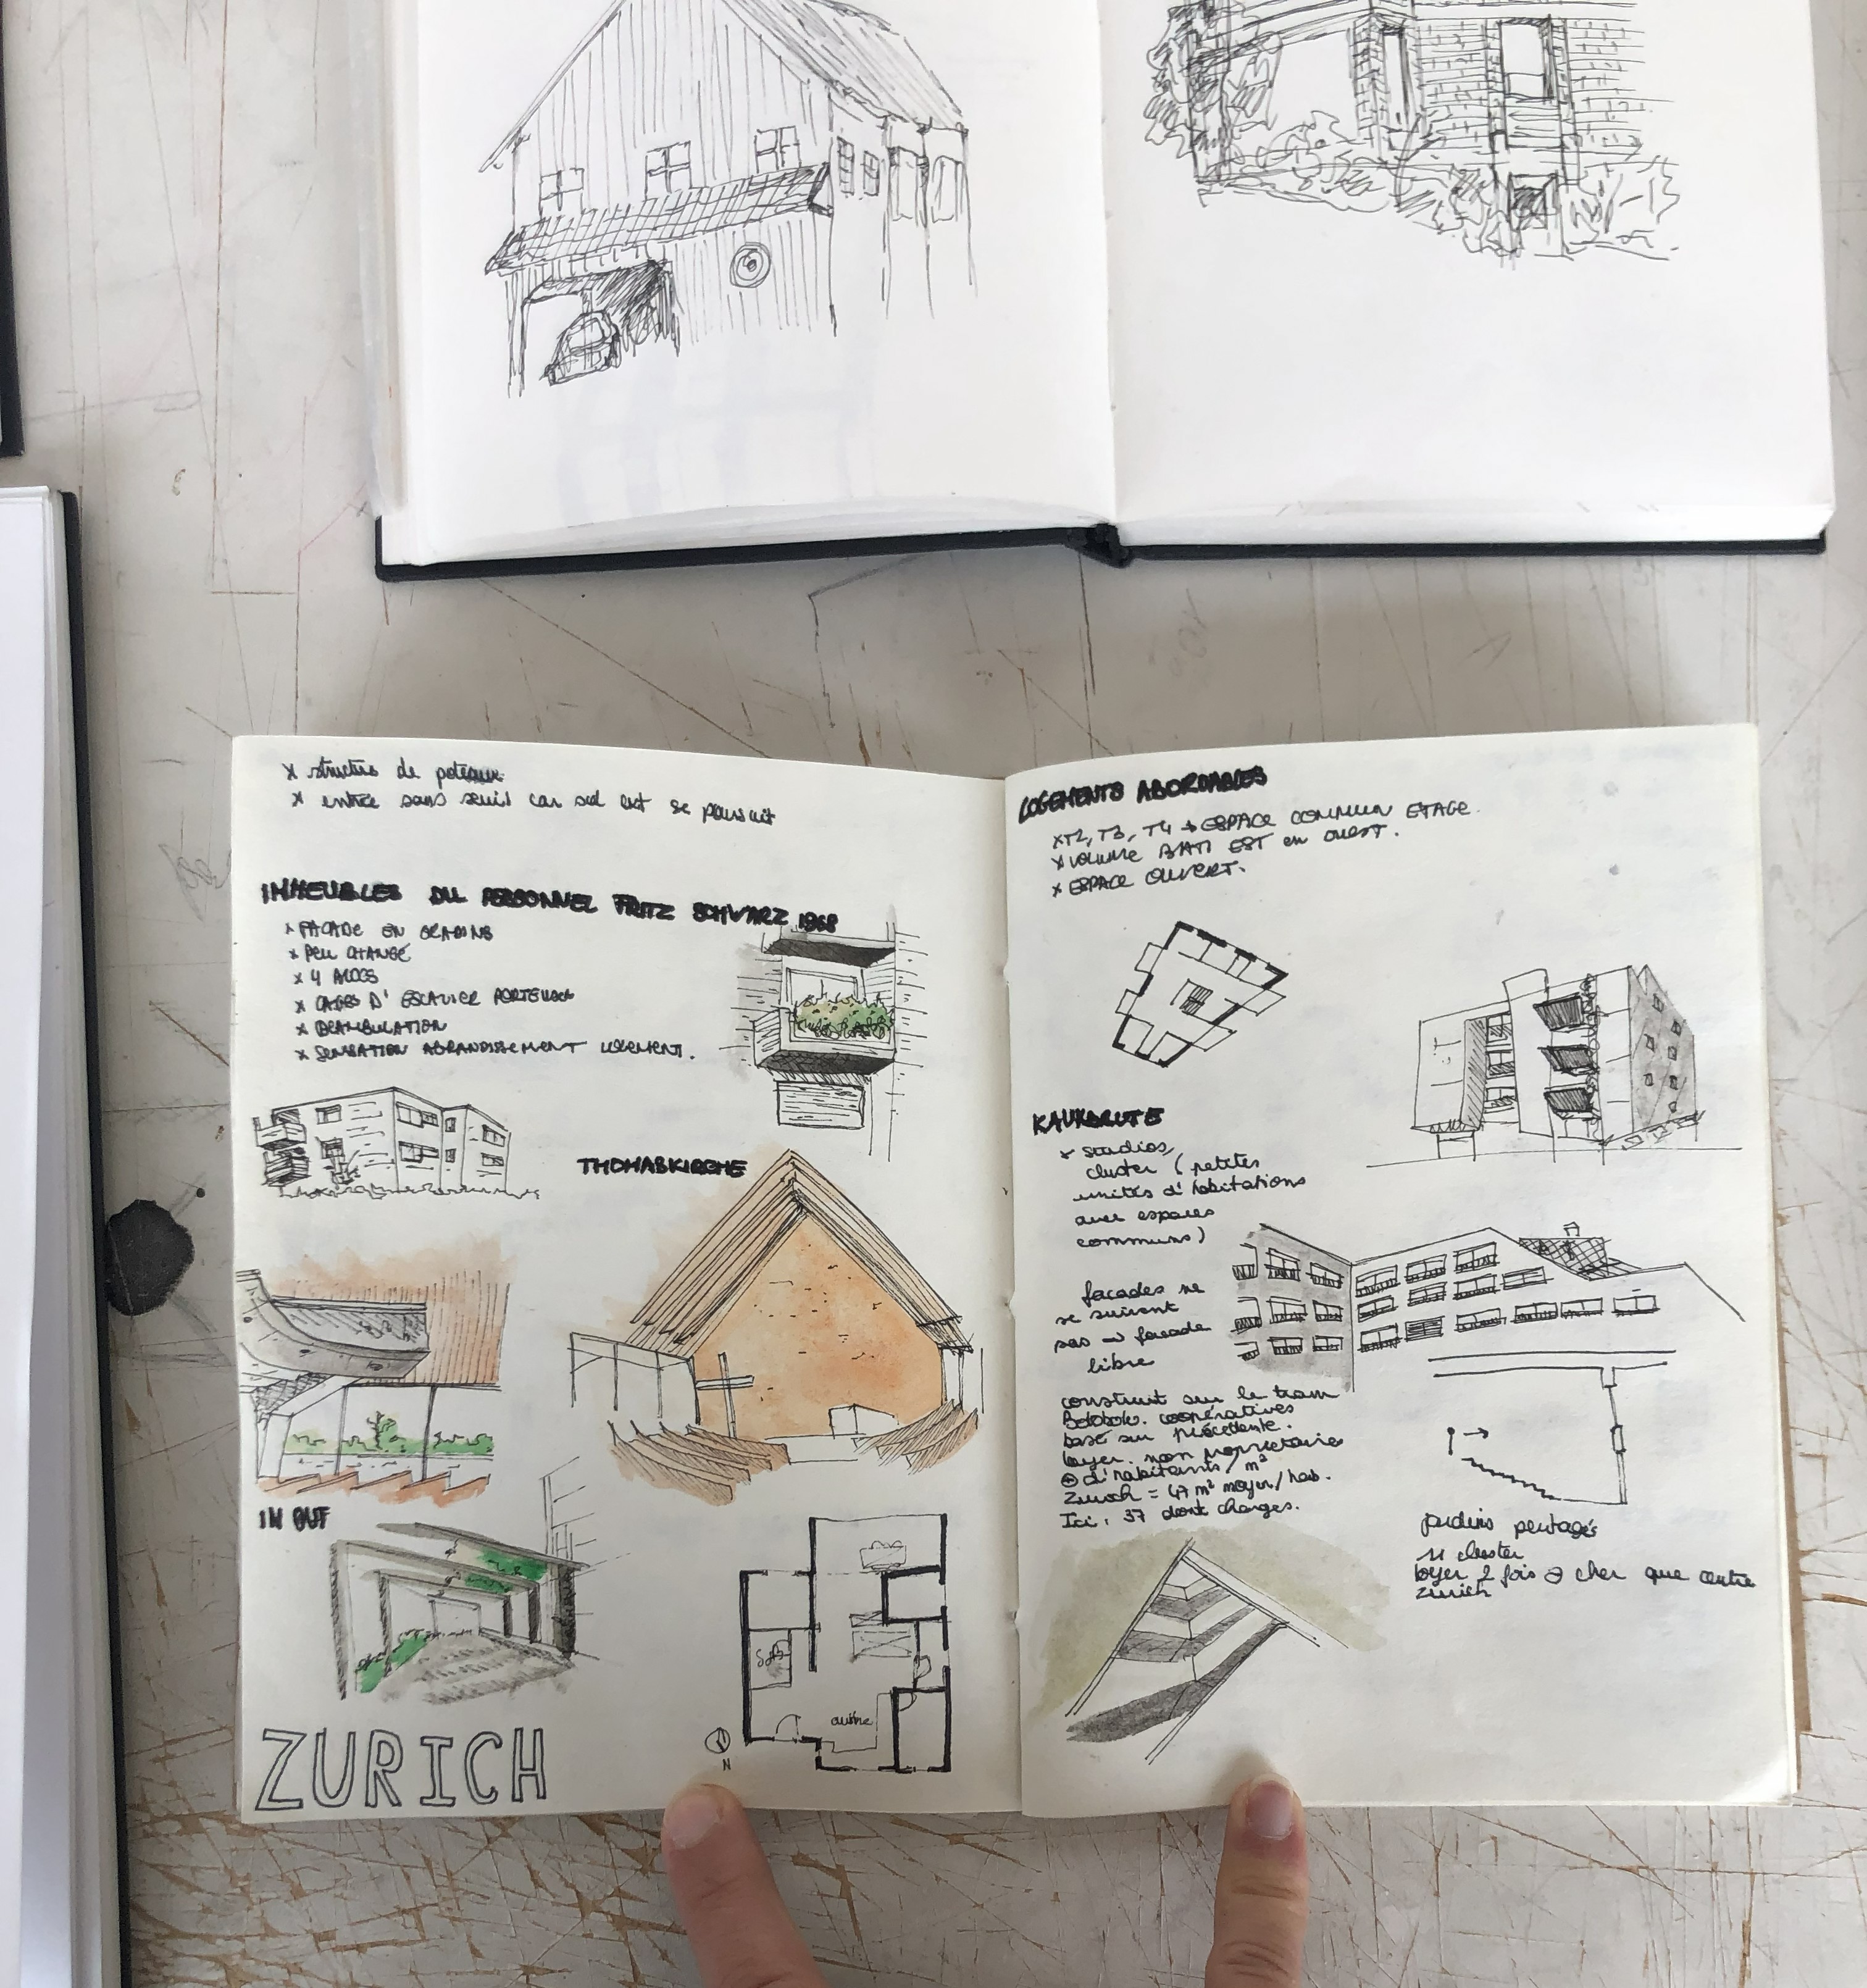 x structure de poteaux
x entrée sans seuil car sol ext se poursuit
IMMEUBLES DU PERSONNEL FRITZ SCHWARZ 1968
x FACADE EN GRADINS
x PEU CHANGÉ
x 4 ACCES
x CAGES D'ESCALIER PORTEUSES
x DEAMBULATION
x SENSATION AGRANDISSEMENT LOGEMENT.
THOMASKIRCHE
IN OUT
SdB
cuisine
N
ZURICH
LOGEMENTS ABORDABLES
x T2, T3, T4 → ESPACE COMMUN ETAGE.
x VOLUME BATI EST en OUEST.
x ESPACE OUVERT.
KALKBREITE
x studios,
cluster (petites
unités d'habitations
avec espaces
communs)
façades ne
se suivent
pas → façade
libre
construit sur le tram
coopératives
basé sur précédente.
loyer. non proprietaire
⊕ d'habitants / m²
Zurich = 47 m² moyen / hab.
Ici : 37 dont charges.
jardins partagés
11 cluster
loyer 2 fois ⊖ cher que centre
zurich